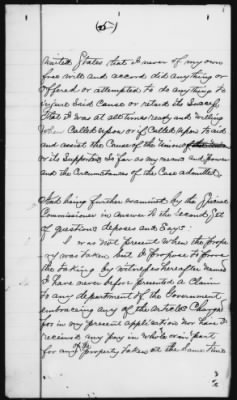 (5)
United States that I never of my own
free will and accord did anything or
offered or attempted to do anything to
injure said Cause or retard its Success
that I was at all times ready and willing
when Called upon or if Called upon to aid
and assist the Cause of the Union
or its Supporters So far as my means and power
and the Circumstances of the Case admitted.
And being further examined by the Special
Commissioner in Answer to the Second Set
of questions deposes and Says:
I was not present when the prope
ry was taken but I propose to prove
the taking by witnesses hereafter named
I have never before presented a Claim
to any department of the Government
embracing any of the articles Charged
for in my present application nor have I
received any pay in whole or in part
for any of the property taken at the Same time